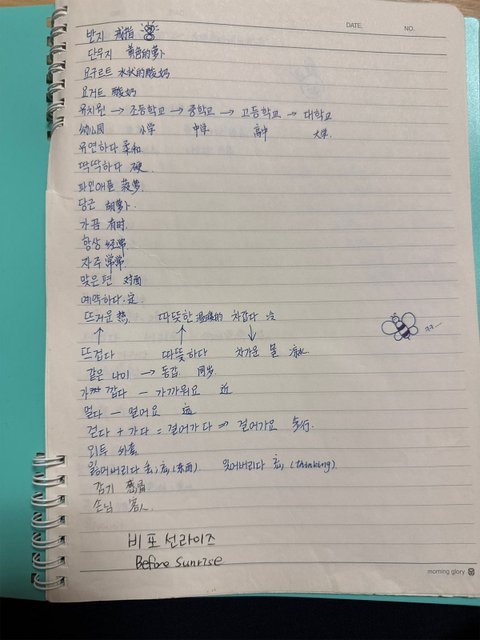 DATE. NO.
반지 戒指
단무지 黄色的萝卜
요구르트 水状的酸奶
요거트 酸奶
유치원 → 초등학교 → 중학교 → 고등학교 → 대학교
幼儿园 小学 中学 高中 大学
유연하다 柔和
딱딱하다 硬
파인애플 菠萝
당근 胡萝卜
가끔 有时
항상 经常
자주 常常
맞은편 对面
예약하다
뜨거운 热 따뜻한 차갑다 冷
뜨겁다 따뜻하다 차가운 물
같은 나이 → 동갑 同岁
가깝다 - 가까워요 近
멀다 - 멀어요 远
걷다 + 가다 = 걸어가다 ⇒ 걸어가요 步行
외투 外套
잃어버리다 丢 (东西) 잊어버리다 忘 (thinking)
감기 感冒
손님 客人
비포 선라이즈
Before Sunrise
morning glory